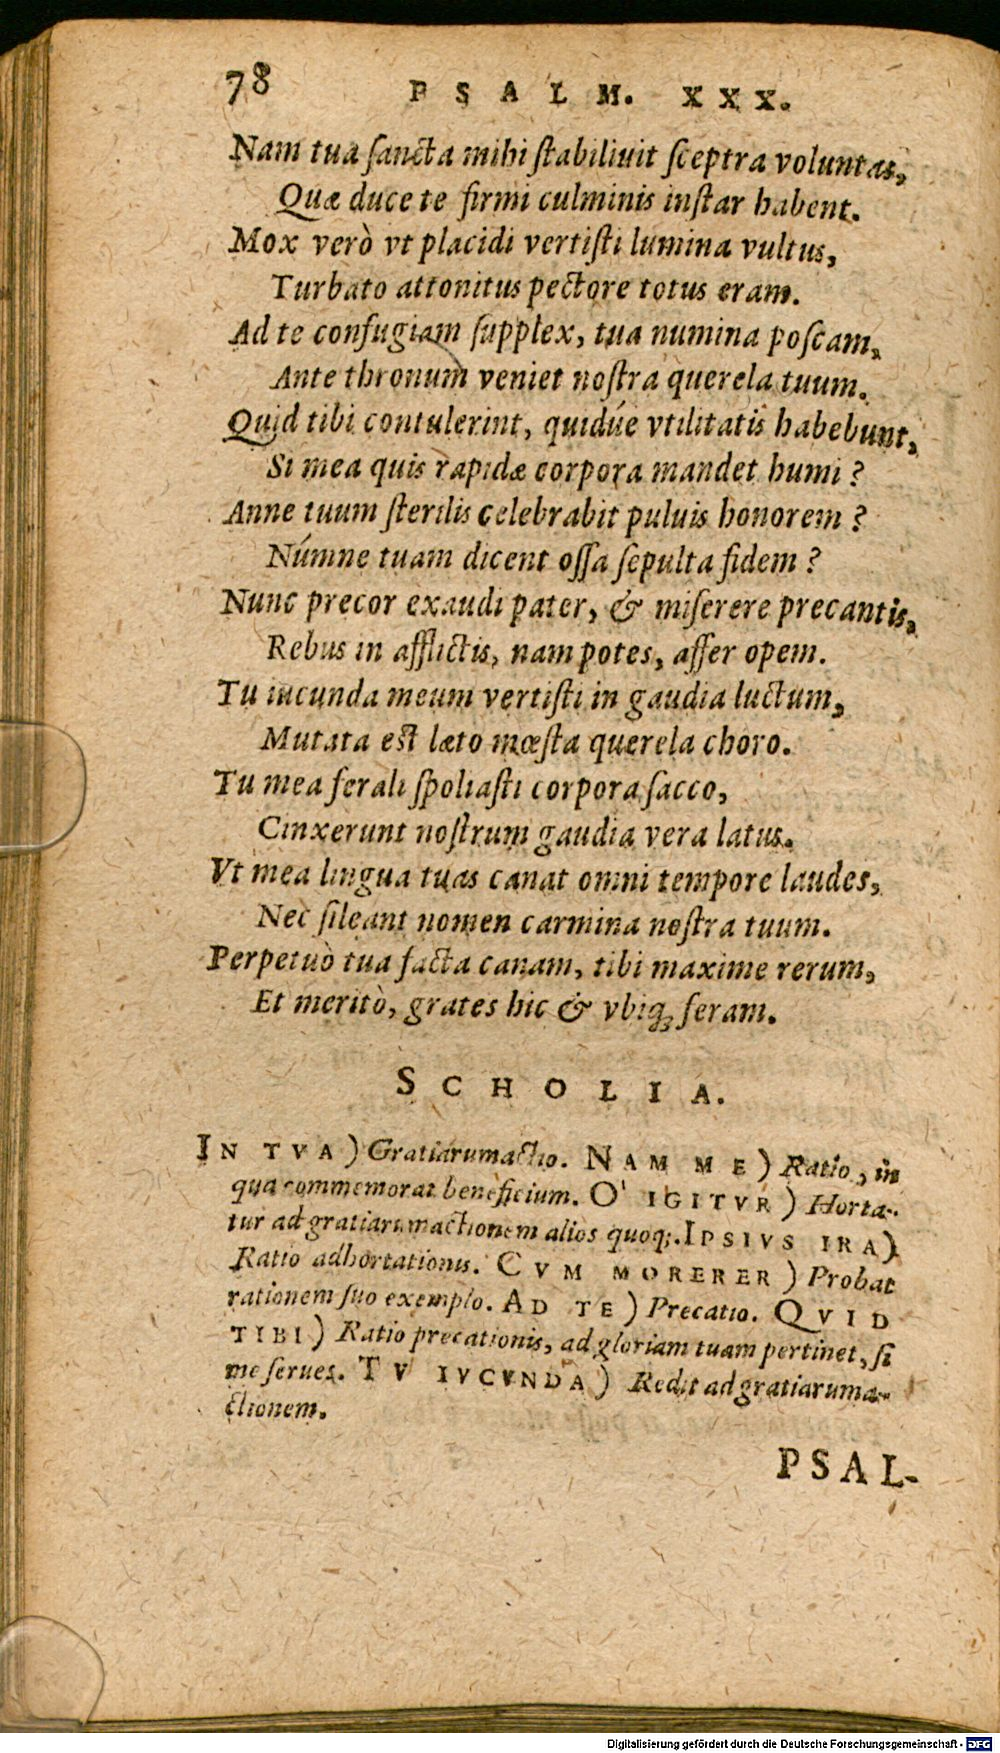 78 PSALM. XXX.
Nam tua ſancta mihi ſtabiliuit ſceptra voluntas,
Quæ duce te firmi culminis inſtar habent.
Mox verò vt placidi vertiſti lumina vultus,
Turbato attonitus pectore totus eram.
Ad te confugiam ſupplex, tua numina poſcam,
Ante thronum veniet noſtra querela tuum.
Quid tibi contulerint, quidúe vtilitatis habebunt,
Si mea quis rapidæ corpora mandet humi?
Anne tuum ſterilis celebrabit puluis honorem?
Númne tuam dicent oſſa ſepulta fidem?
Nunc precor exaudi pater, & miſerere precantis,
Rebus in afflictis, nam potes, affer opem.
Tu iucunda meum vertiſti in gaudia luctum,
Mutata eſt læto mœſta querela choro.
Tu mea ferali ſpoliaſti corpora ſacco,
Cinxerunt noſtrum gaudia vera latus.
Vt mea lingua tuas canat omni tempore laudes,
Nec ſileant nomen carmina noſtra tuum.
Perpetuò tua facta canam, tibi maxime rerum,
Et meritò, grates hic & vbiq; feram.
SCHOLIA.
IN TVA) Gratiarumactio. NAM ME) Ratio, in
qua commemorat beneficium. O' IGITVR) Horta-
tur ad gratiarumactionem alios quoq;. IPSIVS IRA)
Ratio adhortationis. CVM MORERER) Probat
rationem ſuo exemplo. AD TE) Precatio. QVID
TIBI) Ratio precationis, ad gloriam tuam pertinet, ſi
me ſerues. TV IVCVNDA) Redit ad gratiaruma-
ctionem.
PSAL-
Digitalisierung gefördert durch die Deutsche Forschungsgemeinschaft - DFG